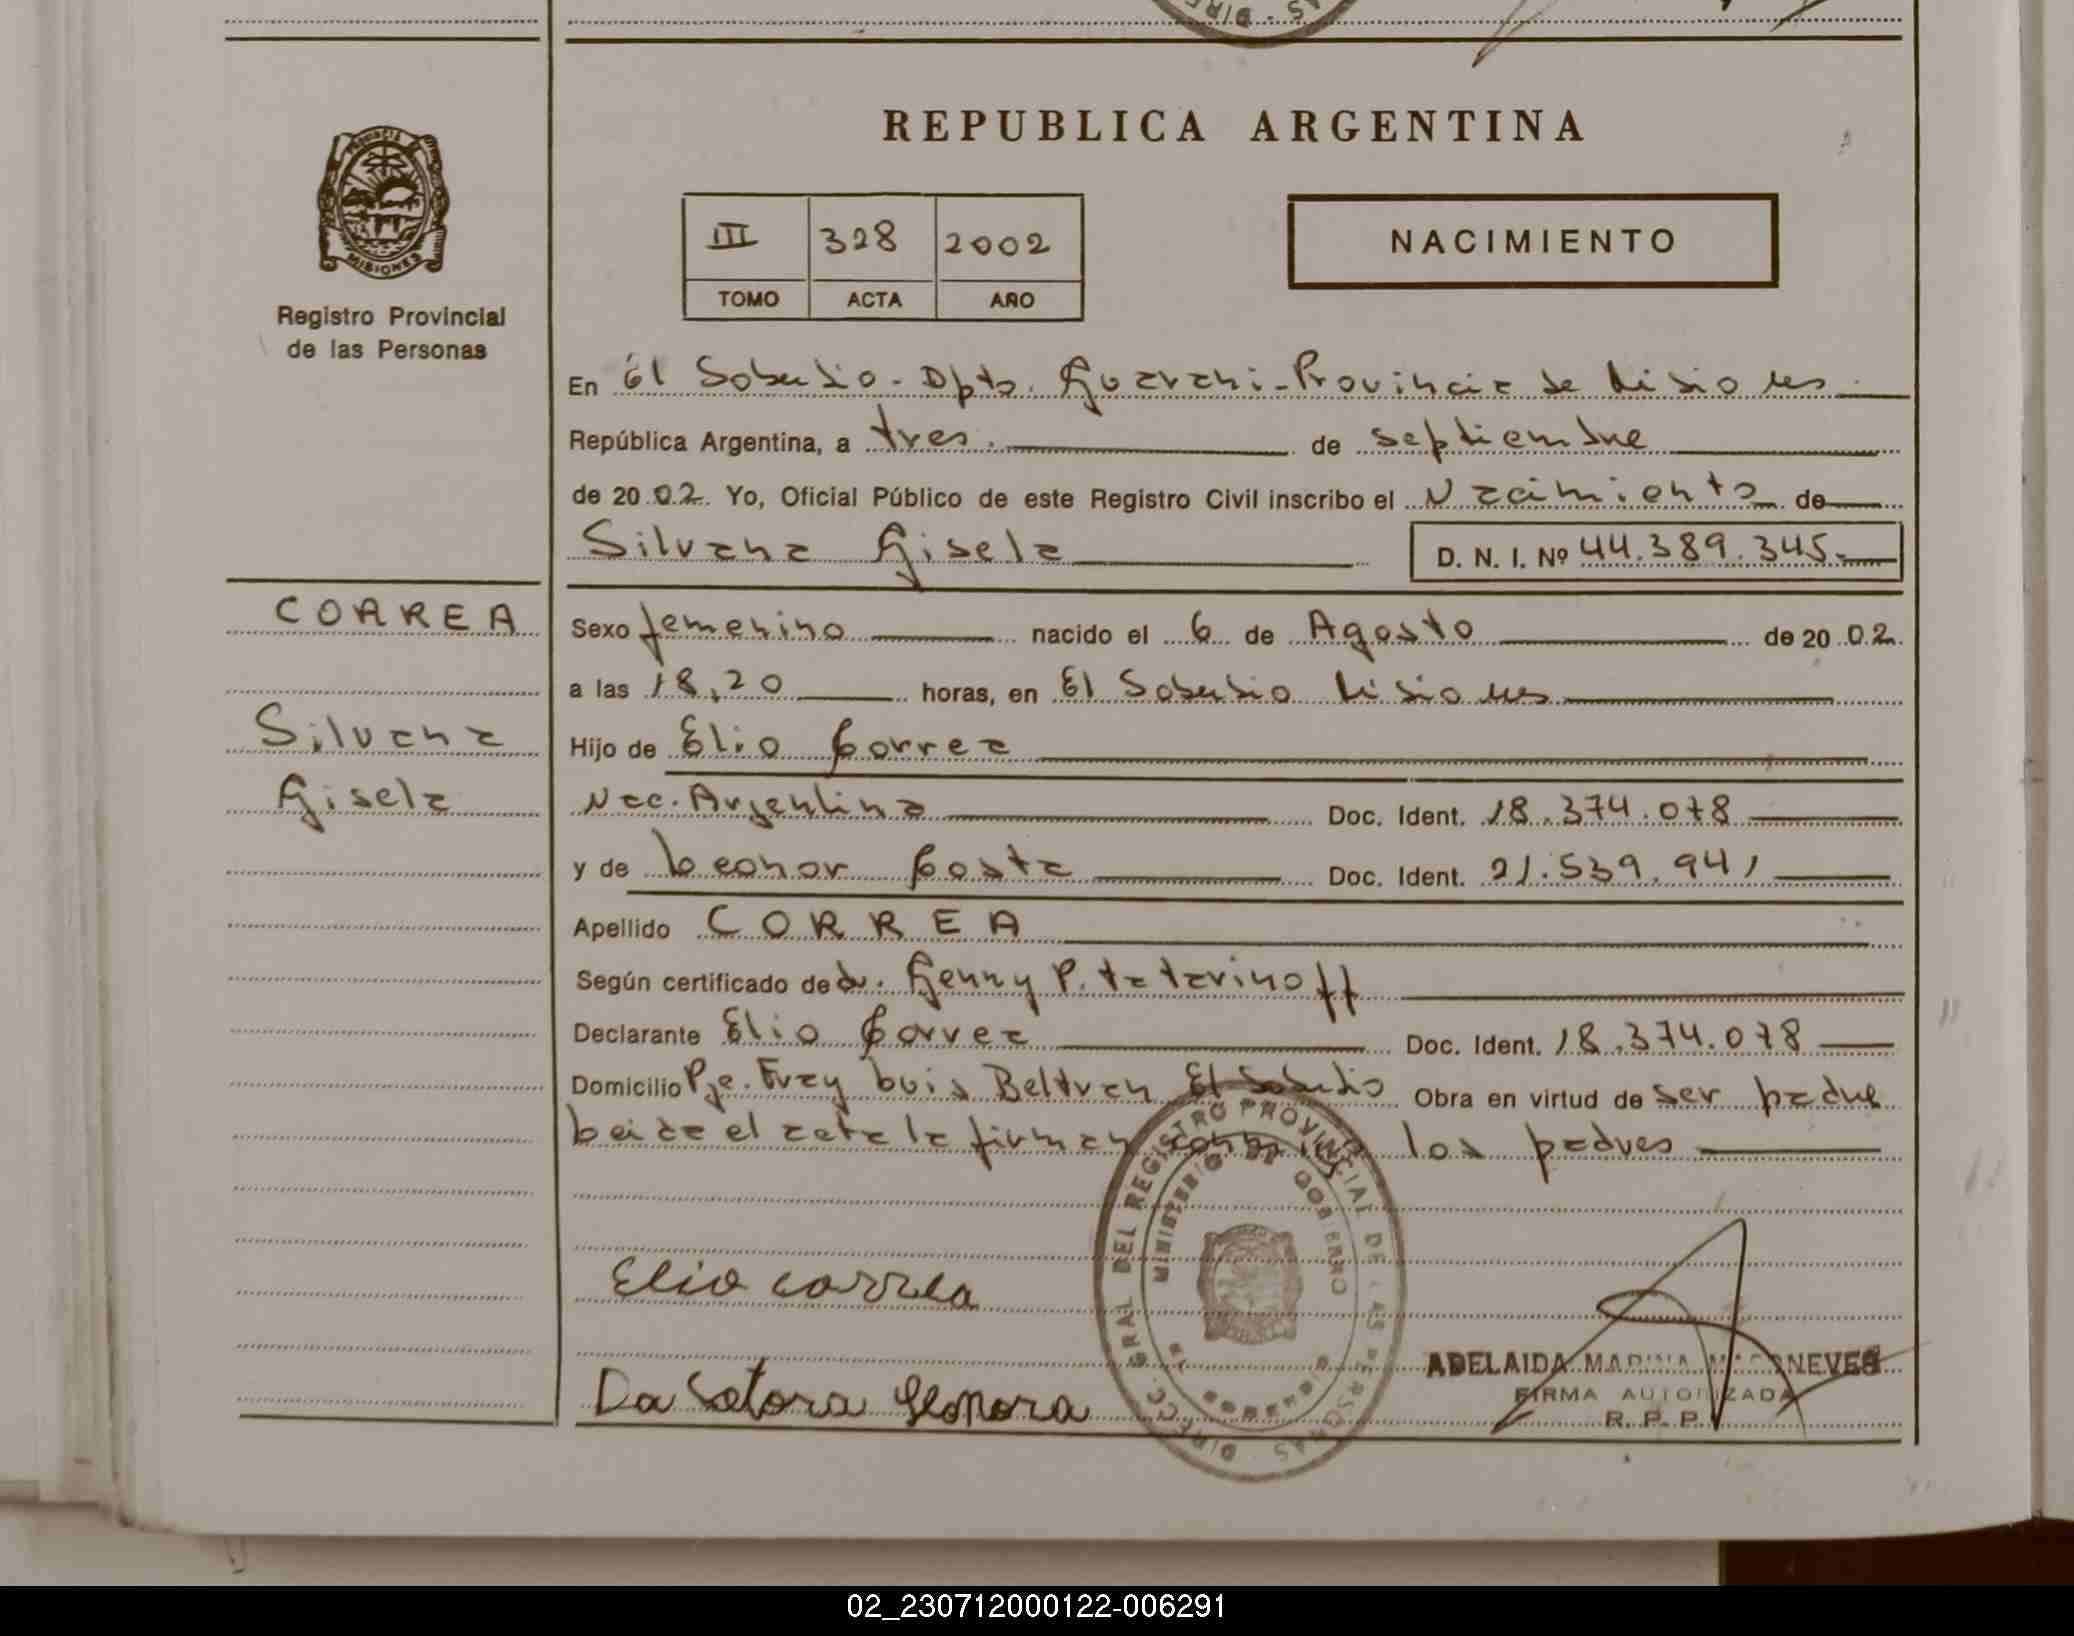 REPUBLICA ARGENTINA
PROVINCIA
MISIONES
Registro Provincial
de las Personas
III 328 2002
TOMO ACTA AÑO
NACIMIENTO
En El Soberbio - Dpto. Guarani - Provincia de Misiones
República Argentina, a tres de septiembre
de 2002. Yo, Oficial Público de este Registro Civil inscribo el Nacimiento de
Silvana Gisela D. N. I. Nº 44.389.345.-
CORREA
Silvana
Gisela
Sexo femenino nacido el 6 de Agosto de 2002.
a las 18,20 horas, en El Soberbio Misiones
Hijo de Elio Correa
Nac. Argentina Doc. Ident. 18.374.078
y de Leonor Costa Doc. Ident. 21.539.941
Apellido CORREA
Según certificado de dr. Genny P. Tatarinoff
Declarante Elio Correa Doc. Ident. 18.374.078
Domicilio Pje. Fray Luis Beltran El Soberbio Obra en virtud de ser padre
Leida el acta la firman conmigo los padres
DIRECC. GRAL DEL REGISTRO PROVINCIAL DE LAS PERSONAS
MINISTERIO DE GOBIERNO
EL SOBERBIO
Elio correa
Da Leonora
ADELAIDA MARINA
FIRMA AUTORIZADA
R. P. P.
02_230712000122-006291